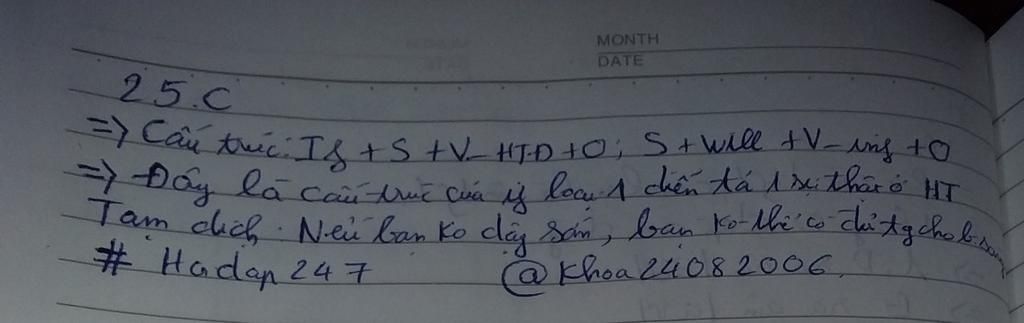 MONTH
DATE
25.C
=> Cấu trúc: If + S + V_HTĐ + O; S + will + V_inf + O
=> Đây là cấu trúc của if loại 1 diễn tả 1 sự thật ở HT
Tạm dịch: Nếu bạn ko dậy sớm, bạn ko thể có đủ tg cho b.sáng
# Hadap 247 @Khoa24082006.